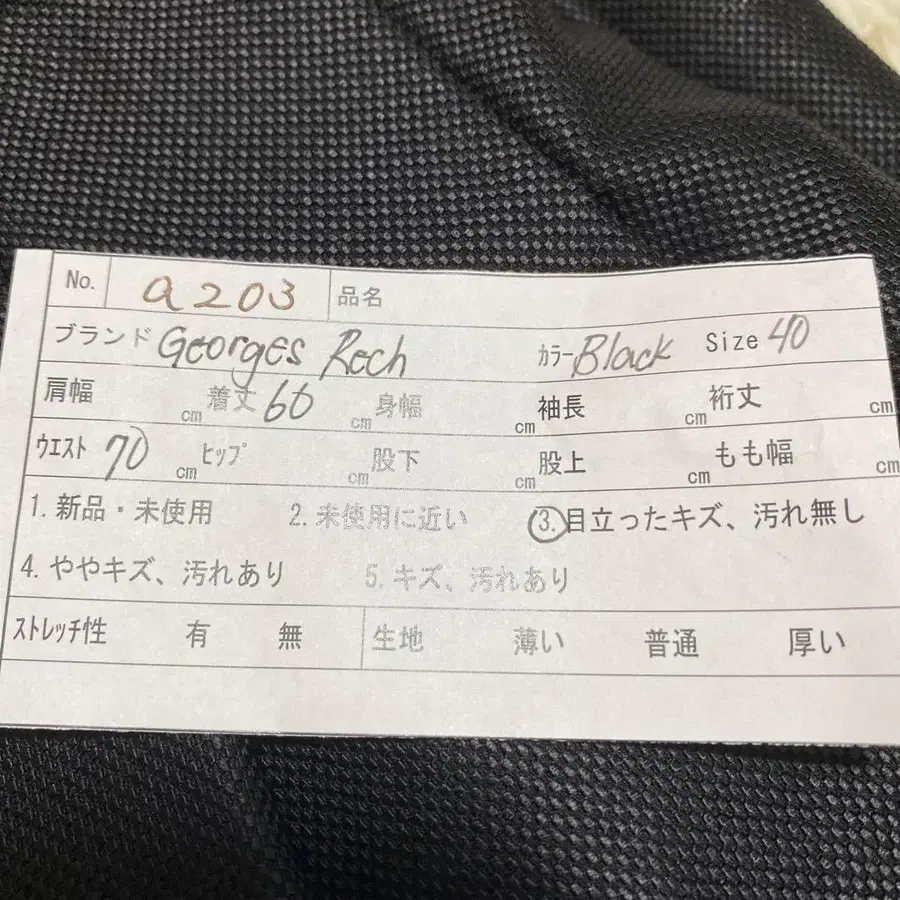 No. a203 品名
ブランド Georges Rech カラー Black Size 40
肩幅 cm 着丈 60 cm 身幅 cm 袖長 cm 裄丈 cm
ウエスト 70 cm ヒップ cm 股下 cm 股上 cm もも幅 cm
1. 新品・未使用 2. 未使用に近い 3. 目立ったキズ、汚れ無し
4. ややキズ、汚れあり 5. キズ、汚れあり
ストレッチ性 有 無 生地 薄い 普通 厚い